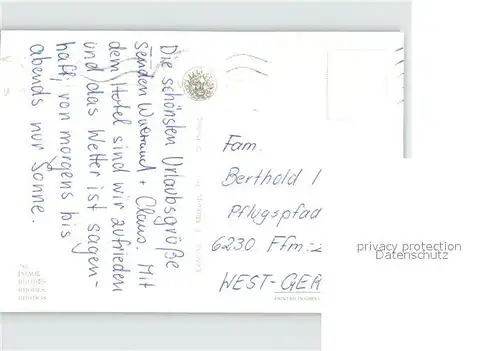 Die schönsten Urlaubsgröße
senden Waltraud + Claus. Mit
dem Hotel sind wir zufrieden
und das Wetter ist sagen-
haft, von morgens bis
abends nur Sonne.
Fam.
Berthold
Pflugspfad
6230 Ffm.-
WEST-GER
privacy protection
Datenschutz
RHODES
RHODOS